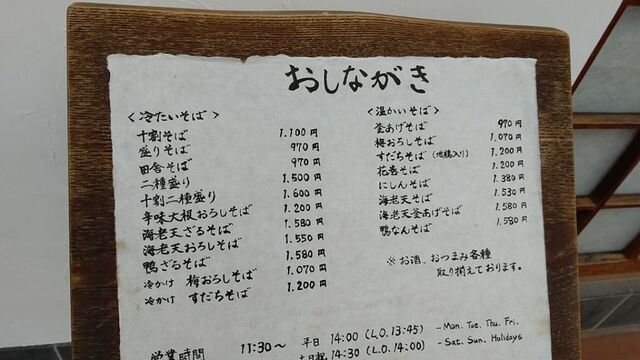 おしながき
＜冷たいそば＞
十割そば 1.100円
盛りそば 970円
田舎そば 970円
二種盛り 1.500円
十割二種盛り 1.600円
辛味大根おろしそば 1.200円
海老天ざるそば 1.580円
海老天おろしそば 1.550円
鴨ざるそば 1.580円
冷かけ 梅おろしそば 1.070円
冷かけ すだちそば 1.200円
＜温かいそば＞
釜あげそば 970円
梅おろしそば 1.070円
すだちそば（地鶏入り） 1.200円
花巻そば 1.200円
にしんそば 1.380円
海老天そば 1.530円
海老天釜あげそば 1.580円
鴨なんそば 1.580円
※お酒、おつまみ各種
取り揃えております。
営業時間 11:30〜 平日 14:00 (L.O.13:45) - Mon. Tue. Thu. Fri.
土日祝 14:30 (L.O.14:00) - Sat. Sun. Holidays